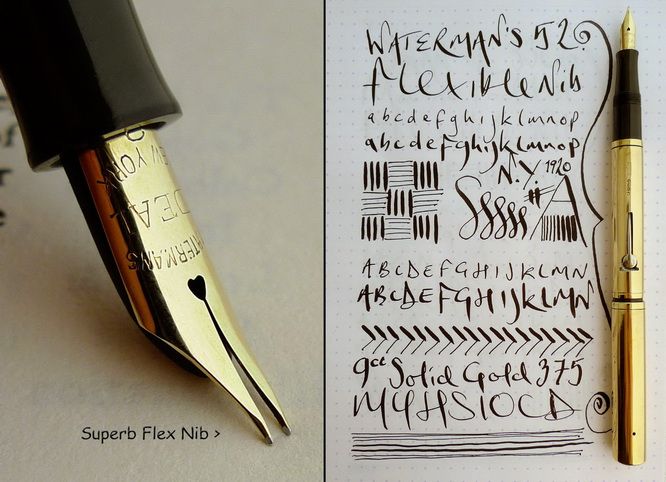 WATERMAN'S
IDEAL
NEW YORK
Superb Flex Nib >
WATERMAN'S 52.
flexible Nib
abcdefghijklmnop
abcdefghijklmnop
N.Y. 1920
SSSSS # A
ABCDEFGHIJKLMN
ABCDEFGHIJKLMN
9ct Solid Gold 375
MYHSIOCD